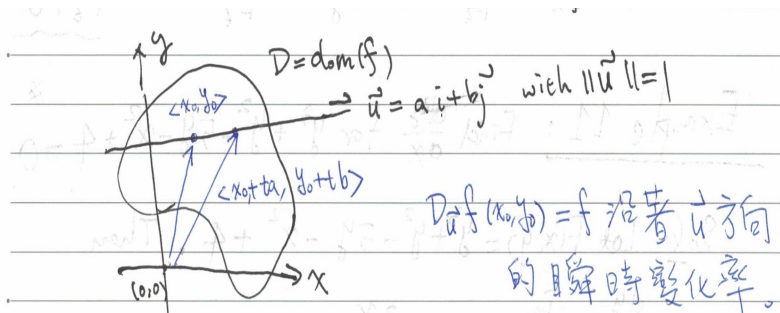 y
D = dom(f)
<x₀, y₀>
u⃗ = a i⃗ + b j⃗ with ‖u⃗‖ = 1
<x₀+ta, y₀+tb>
D_u⃗ f(x₀, y₀) = f 沿著 u⃗ 方向
的瞬時變化率。
x
(0,0)